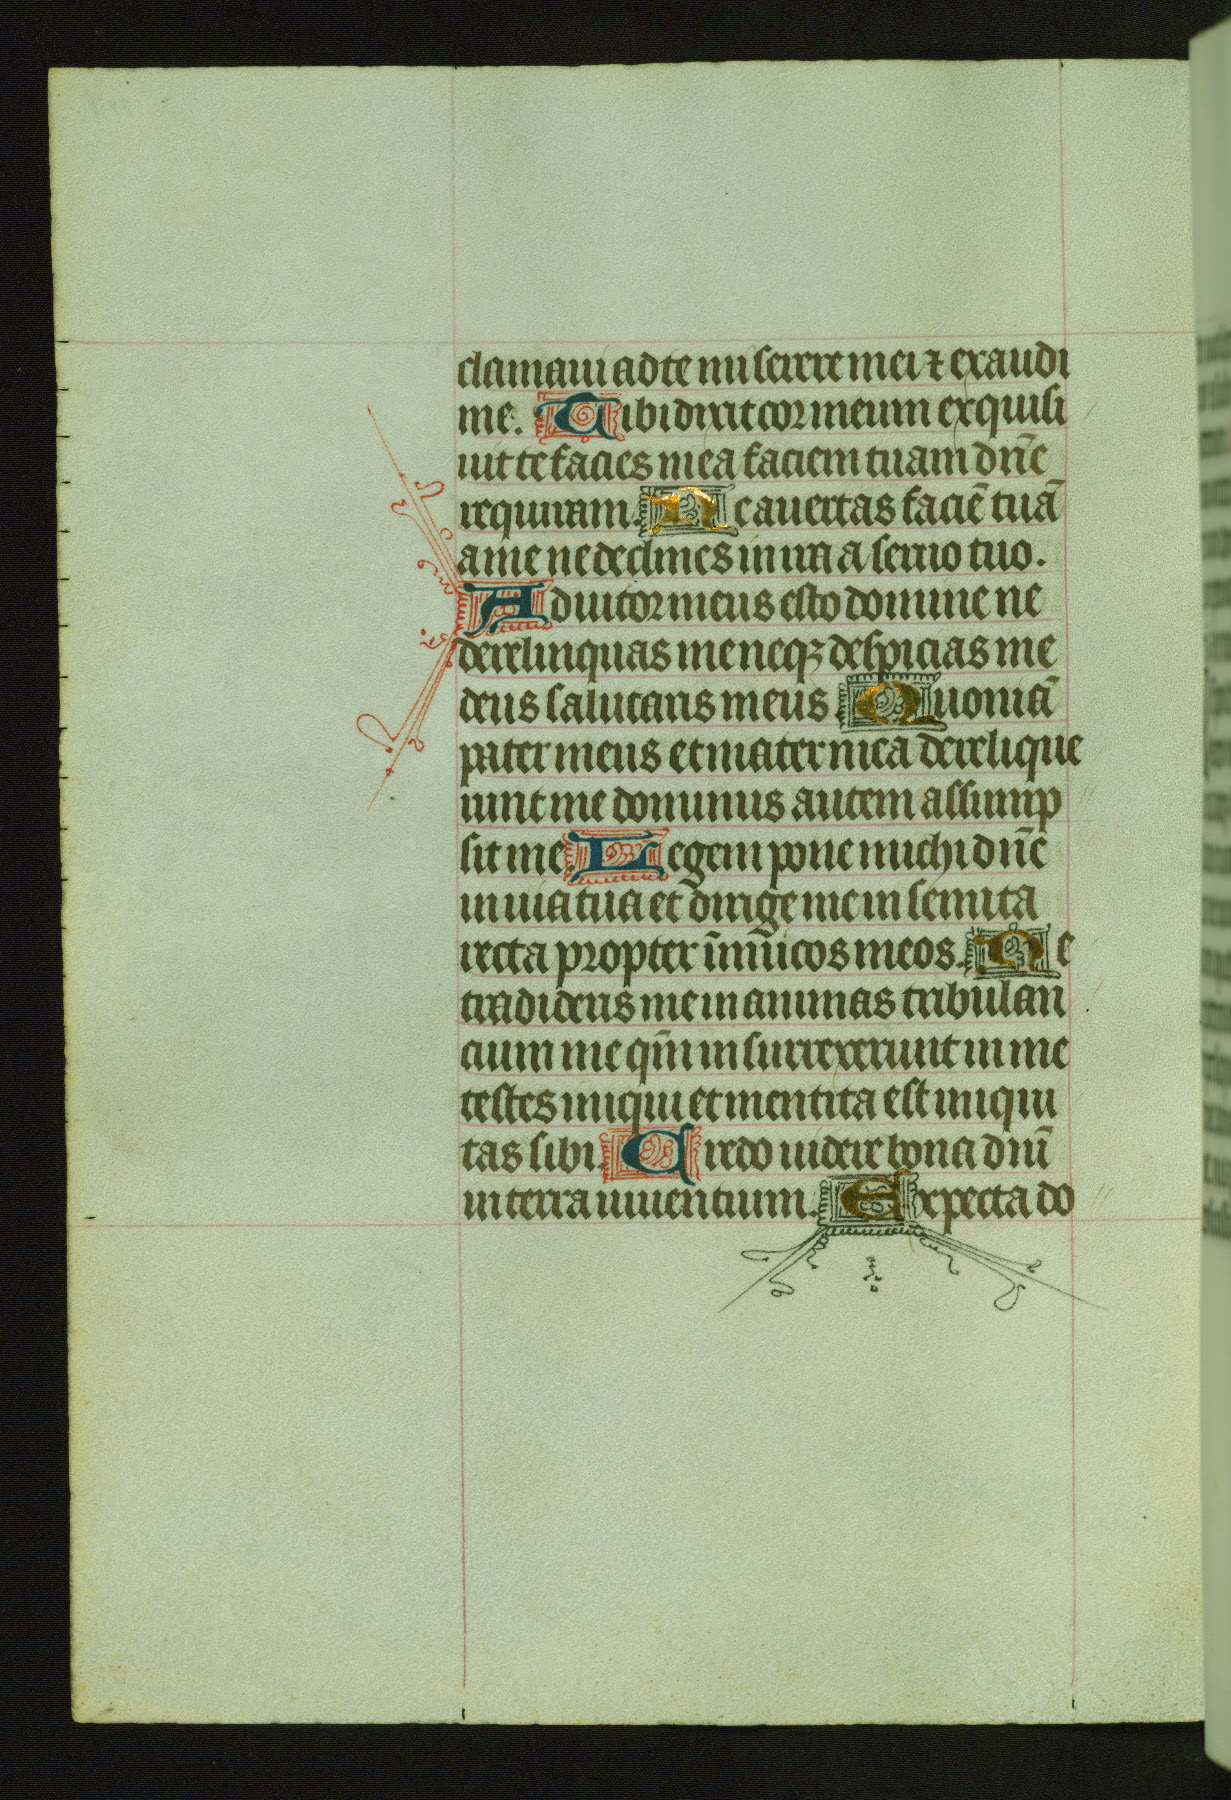 clamaui ad te miserere mei ⁊ exaudi
me. Tibi dixit cor meum exquisi
uit te facies mea faciem tuam dn̄e
requiram. Ne auertas faciē tuā
a me ne declines in ira a seruo tuo.
Adiutor meus esto domine ne
derelinquas me neqꝫ despicias me
deus salutaris meus Quoniā
pater meus et mater mea derelique
runt me dominus autem assump
sit me. Legem pone michi dn̄e
in uia tua et dirige me in semita
recta propter īimicos meos. Ne
tradideris me in animas tribulan
cium me qm̄ insurrexerunt in me
testes iniqui et mentita est iniqui
tas sibi. Credo uidere bona dn̄i
in terra uiuentium. Expecta do